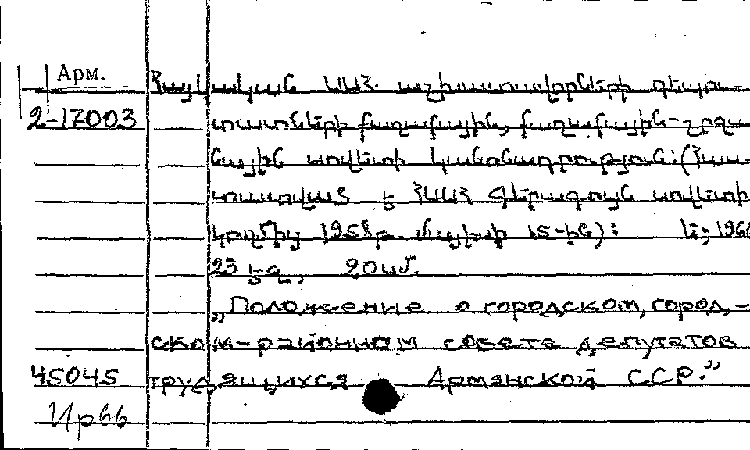 Арм.
Հայկական ՍՍՀ աշխատավորների դեպու-
2-17003
տատների քաղաքային, քաղաքային-շրջա-
նային սովետի կանոնադրություն: (Հաս-
տատված է ՀՍՍՀ Գերագույն սովետի
կողմից 195 թ. մայիսի 15-ին): Ե., 196
23 էջ, 20 սմ.
„Положение о городском, город-
ском-районном совете депутатов
45045 трудящихся Армянской ССР."
Ир66